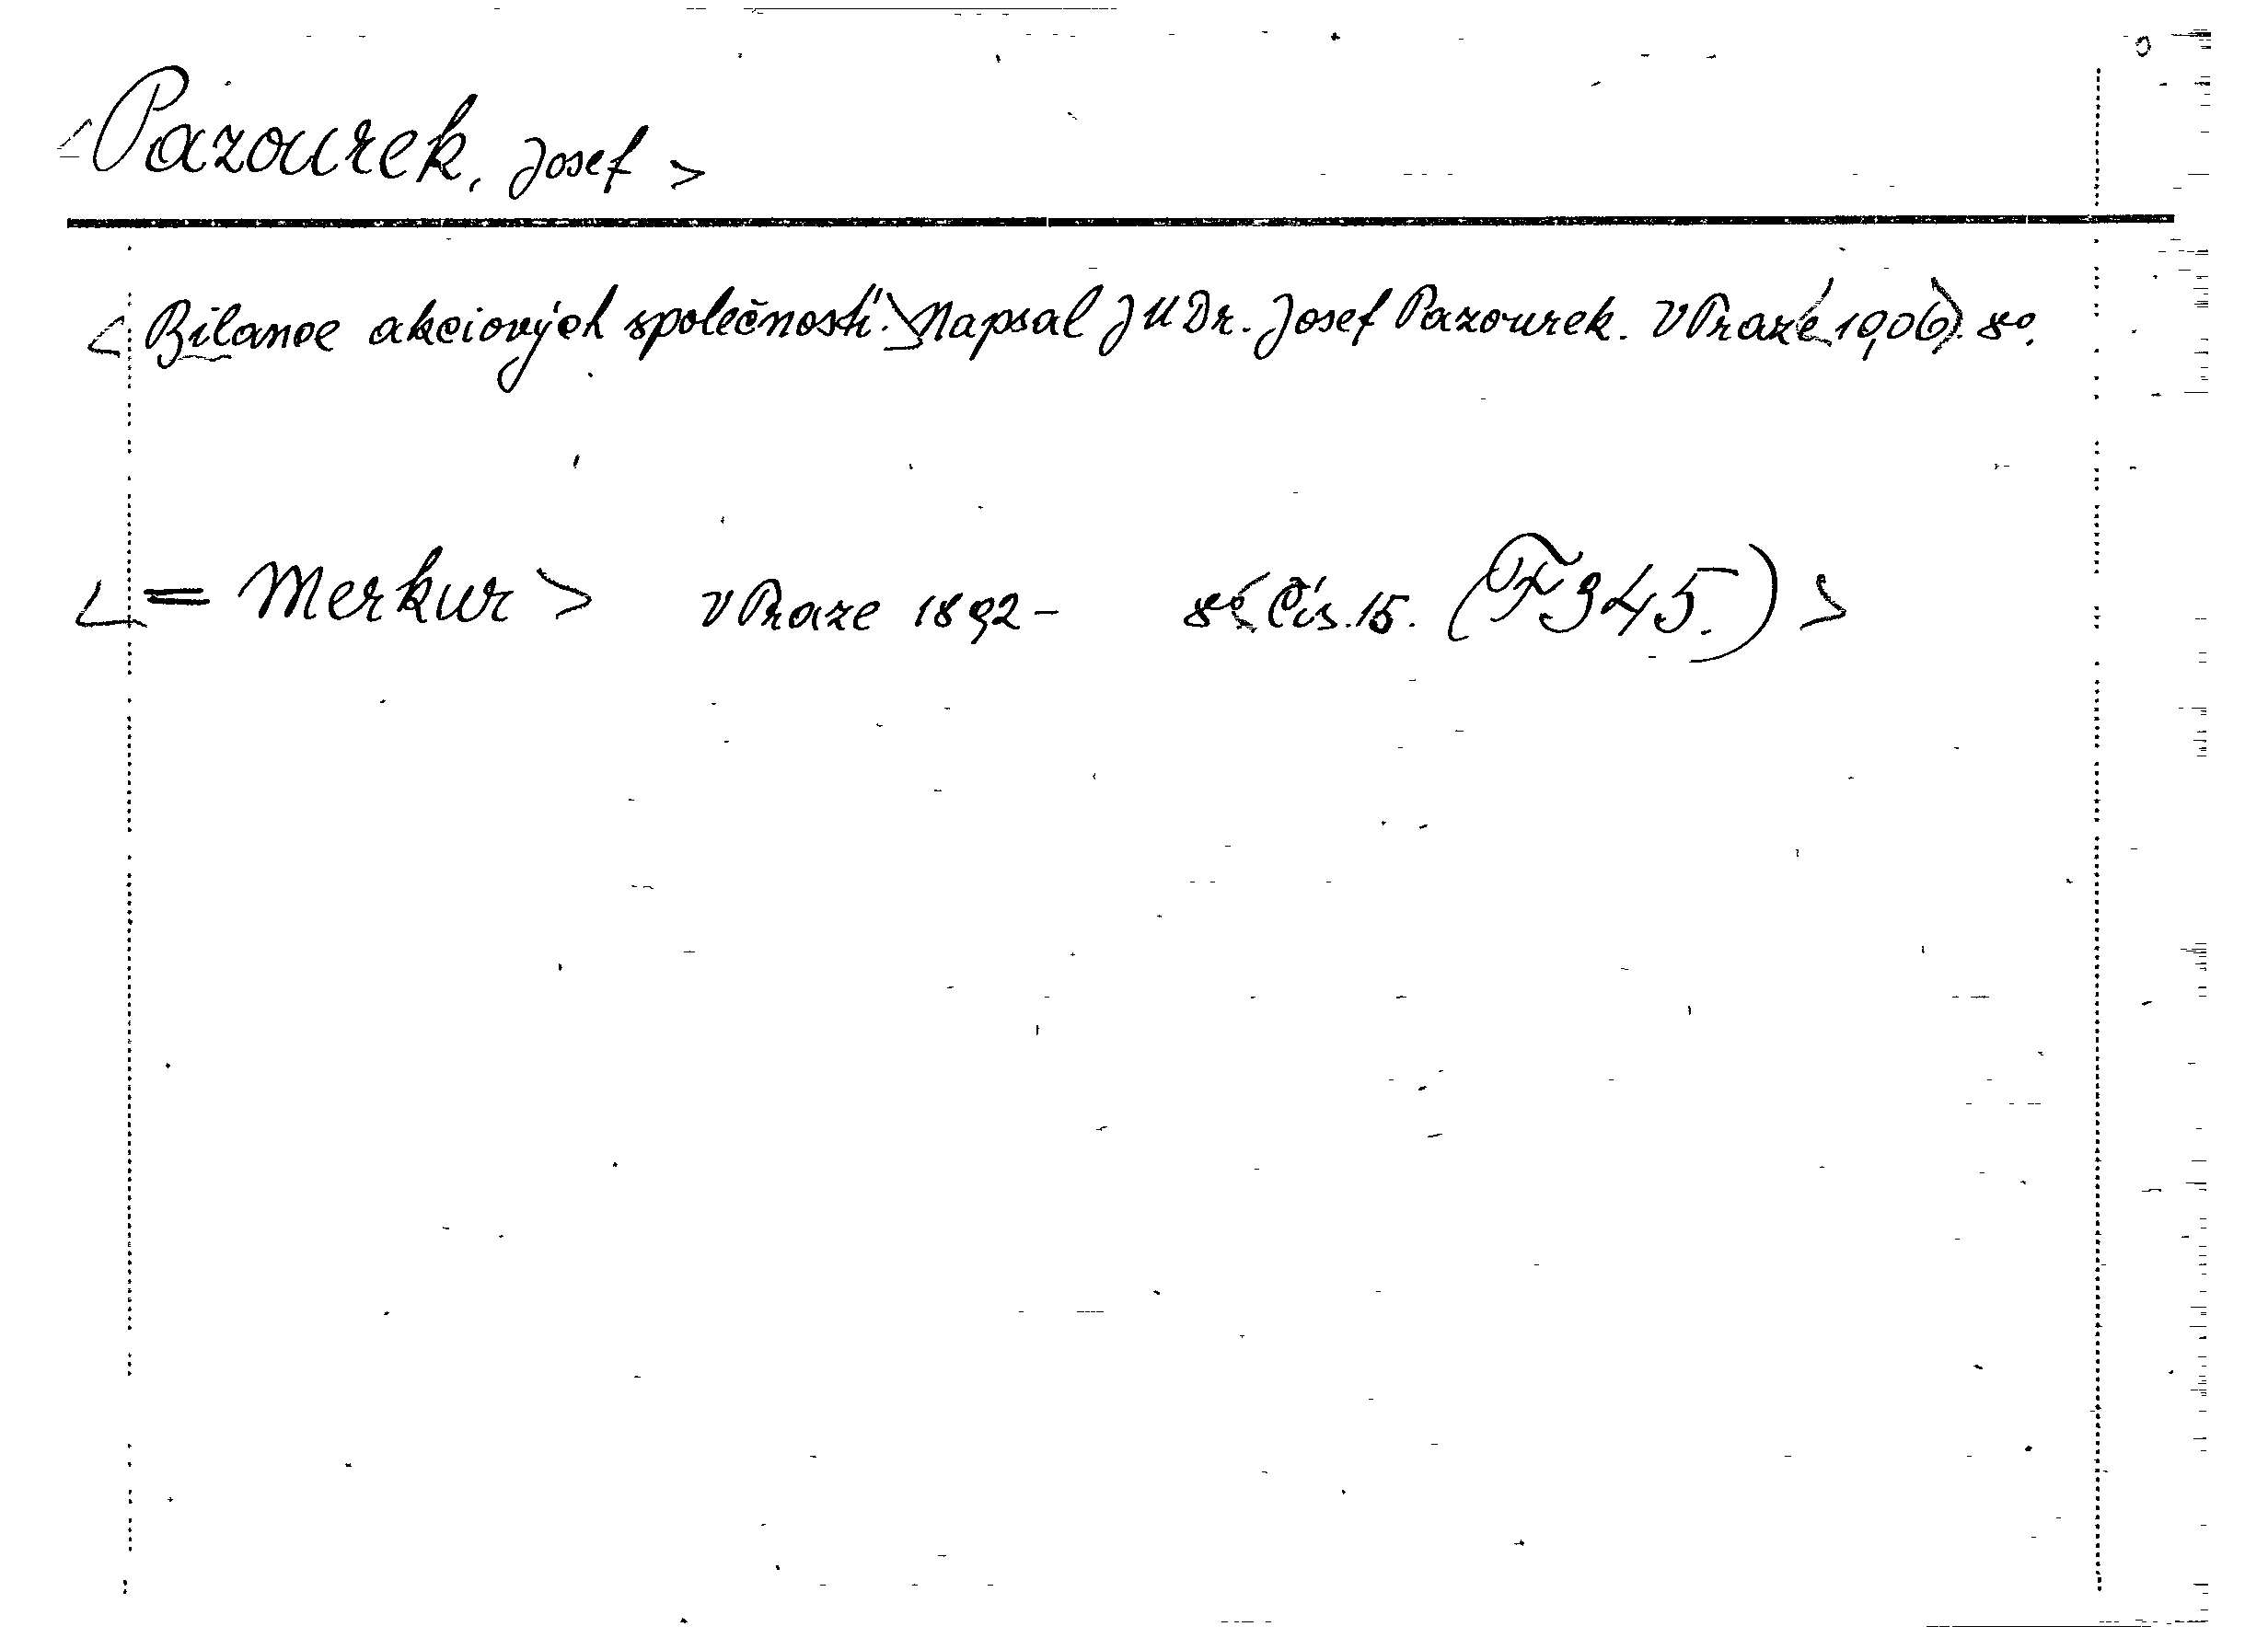 <Pazourek, Josef>
<Bilance akciových společností.> Napsal JUDr. Josef Pazourek. V Praze <1906>. 8°.
<= Merkur> V Praze 1892- 8°. <Čís. 15. (F 345.)>